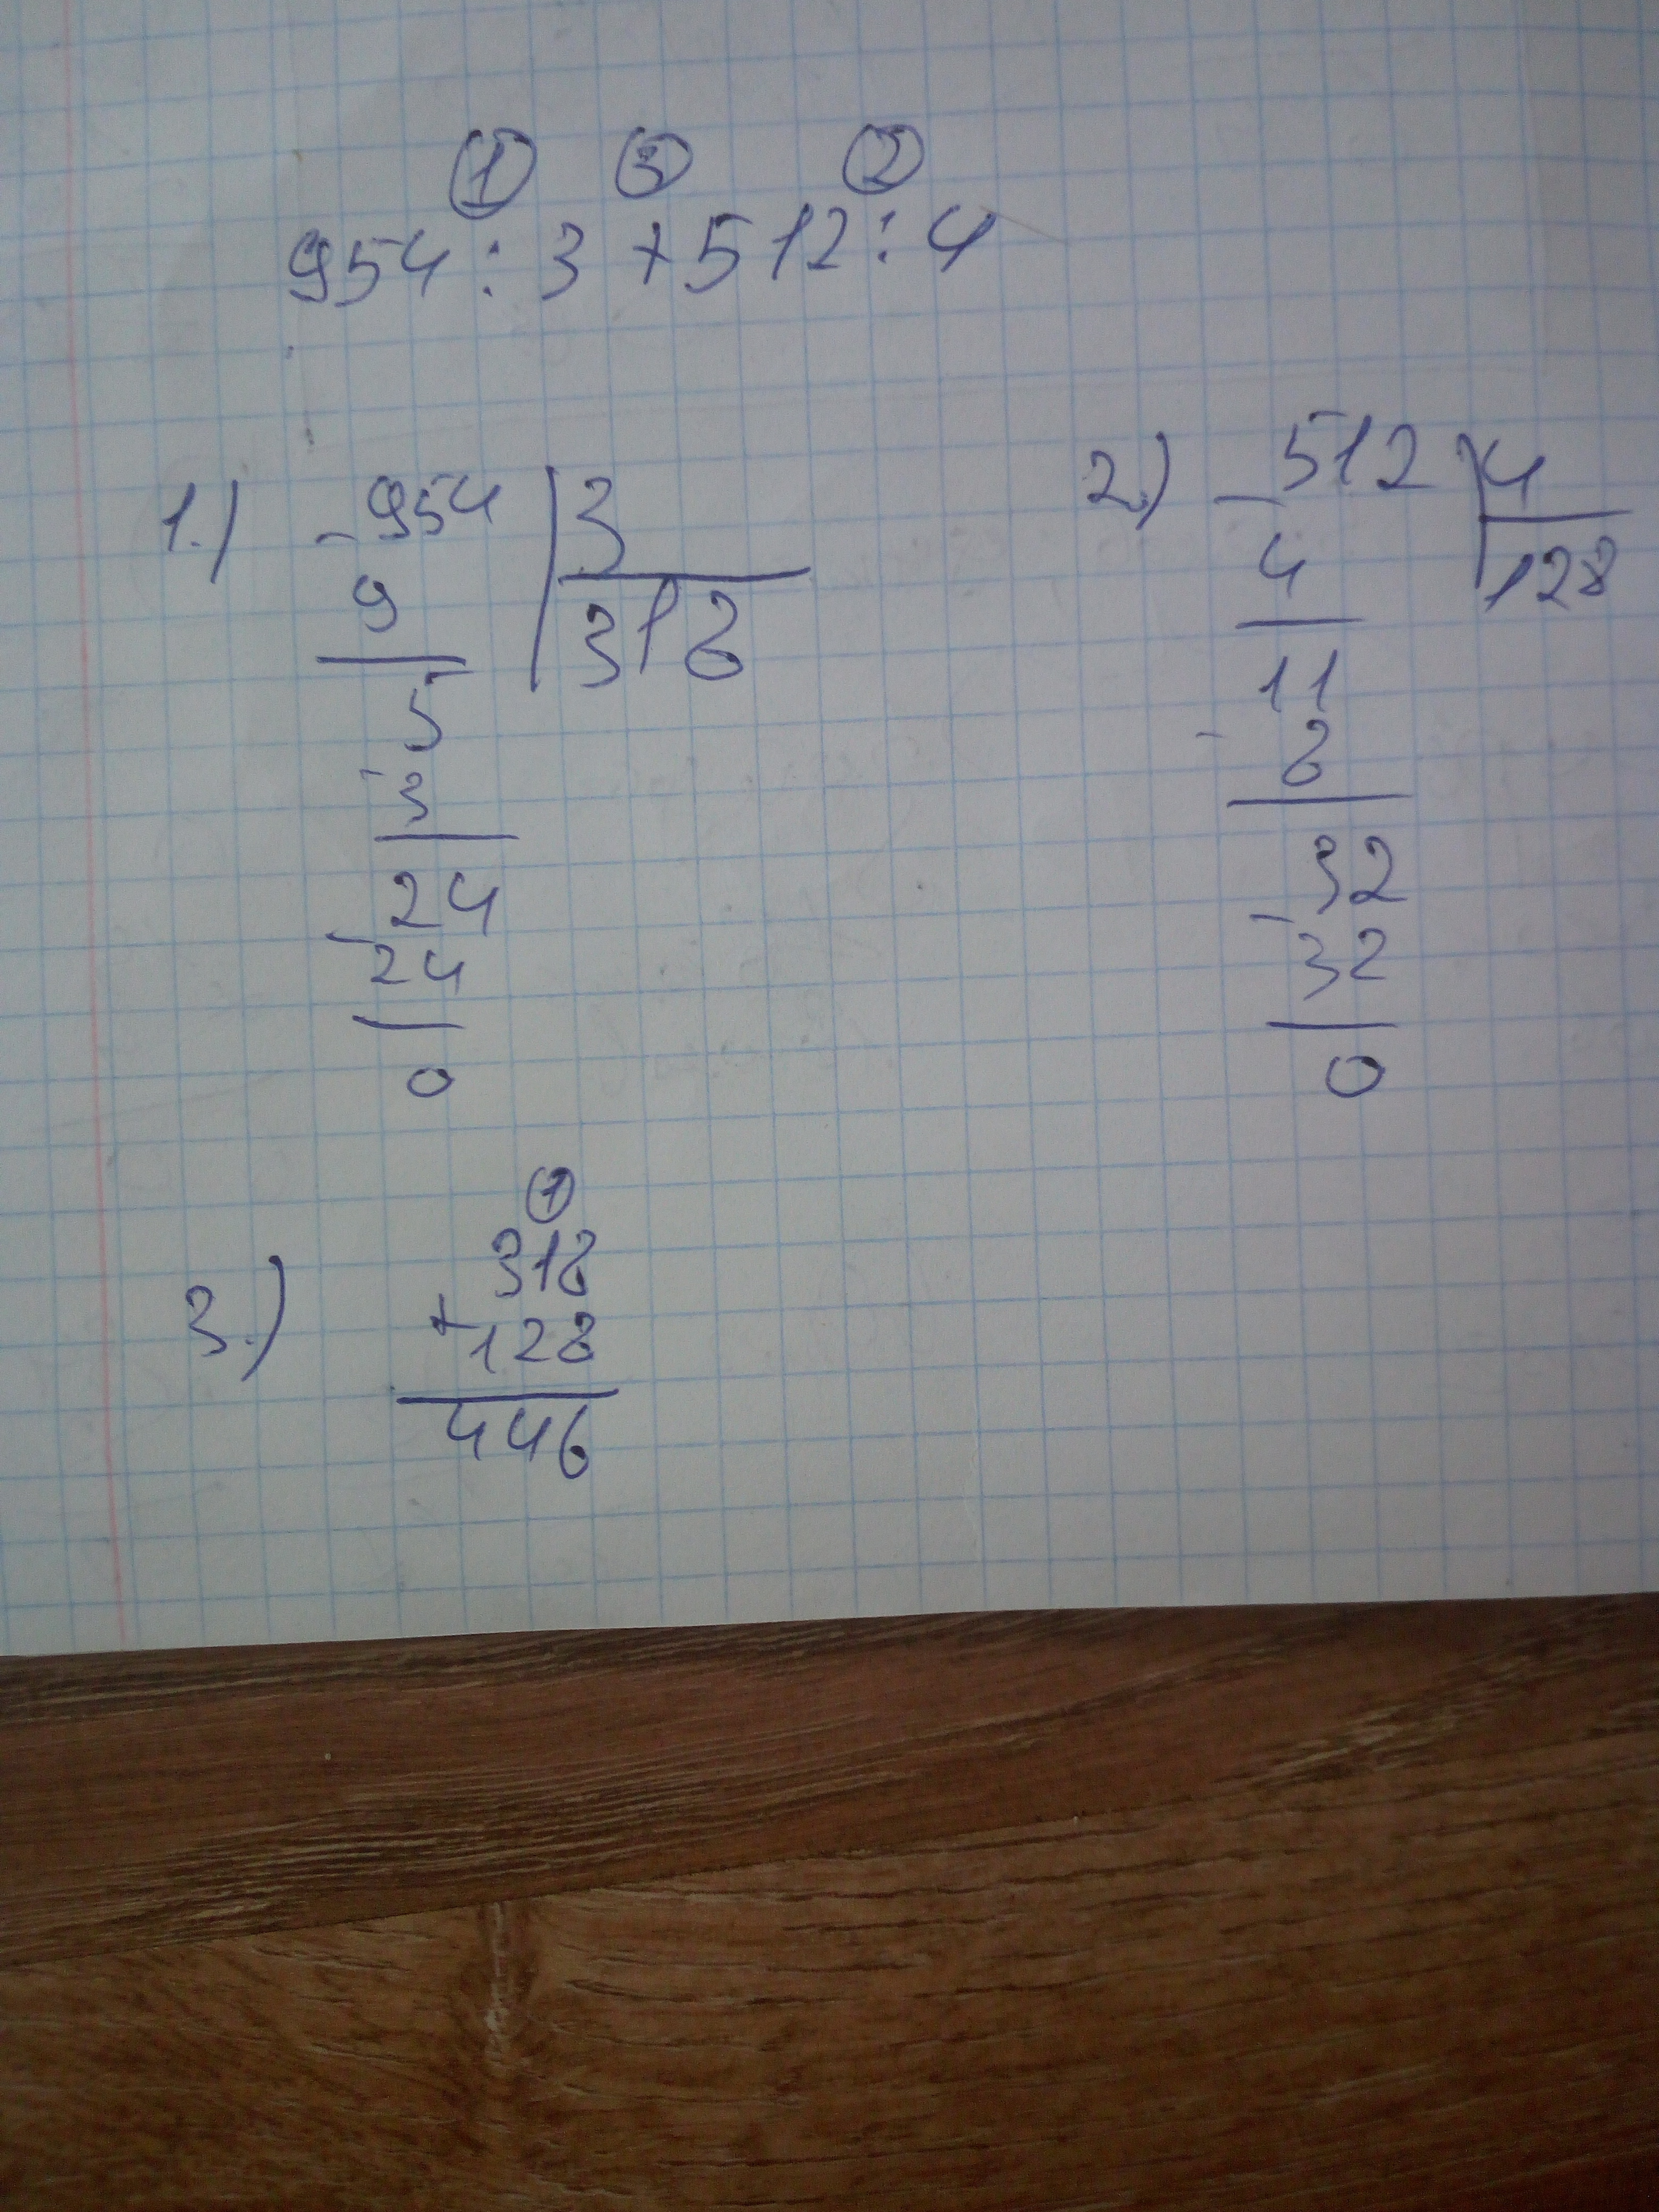 ① ③ ②
954 : 3 + 512 : 4
1.) - 954 | 3
9 318
5
- 3
24
- 24
0
2.) - 512 | 4
4 128
11
- 8
32
- 32
0
①
3.) 318
+ 128
446